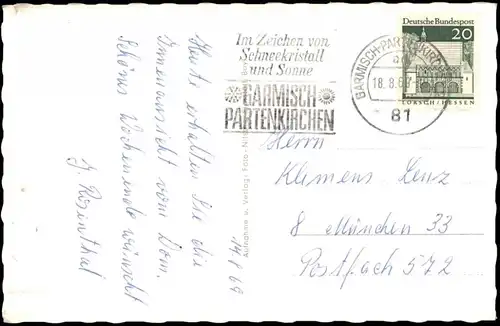 Heute erhalten Sie die
Innenansicht vom Dom.
Schönes Wochenende wünscht
J. Rosenthal
14.8.69
Aufnahme u. Verlag: Foto-
Im Zeichen von
Schneekristall
und Sonne
GARMISCH
PARTENKIRCHEN
GARMISCH-PARTENKIRCHEN
18.8.69
81
Deutsche Bundespost
20
LORSCH/HESSEN
Herrn
Klemens Lenz
8 München 33
Postfach 572